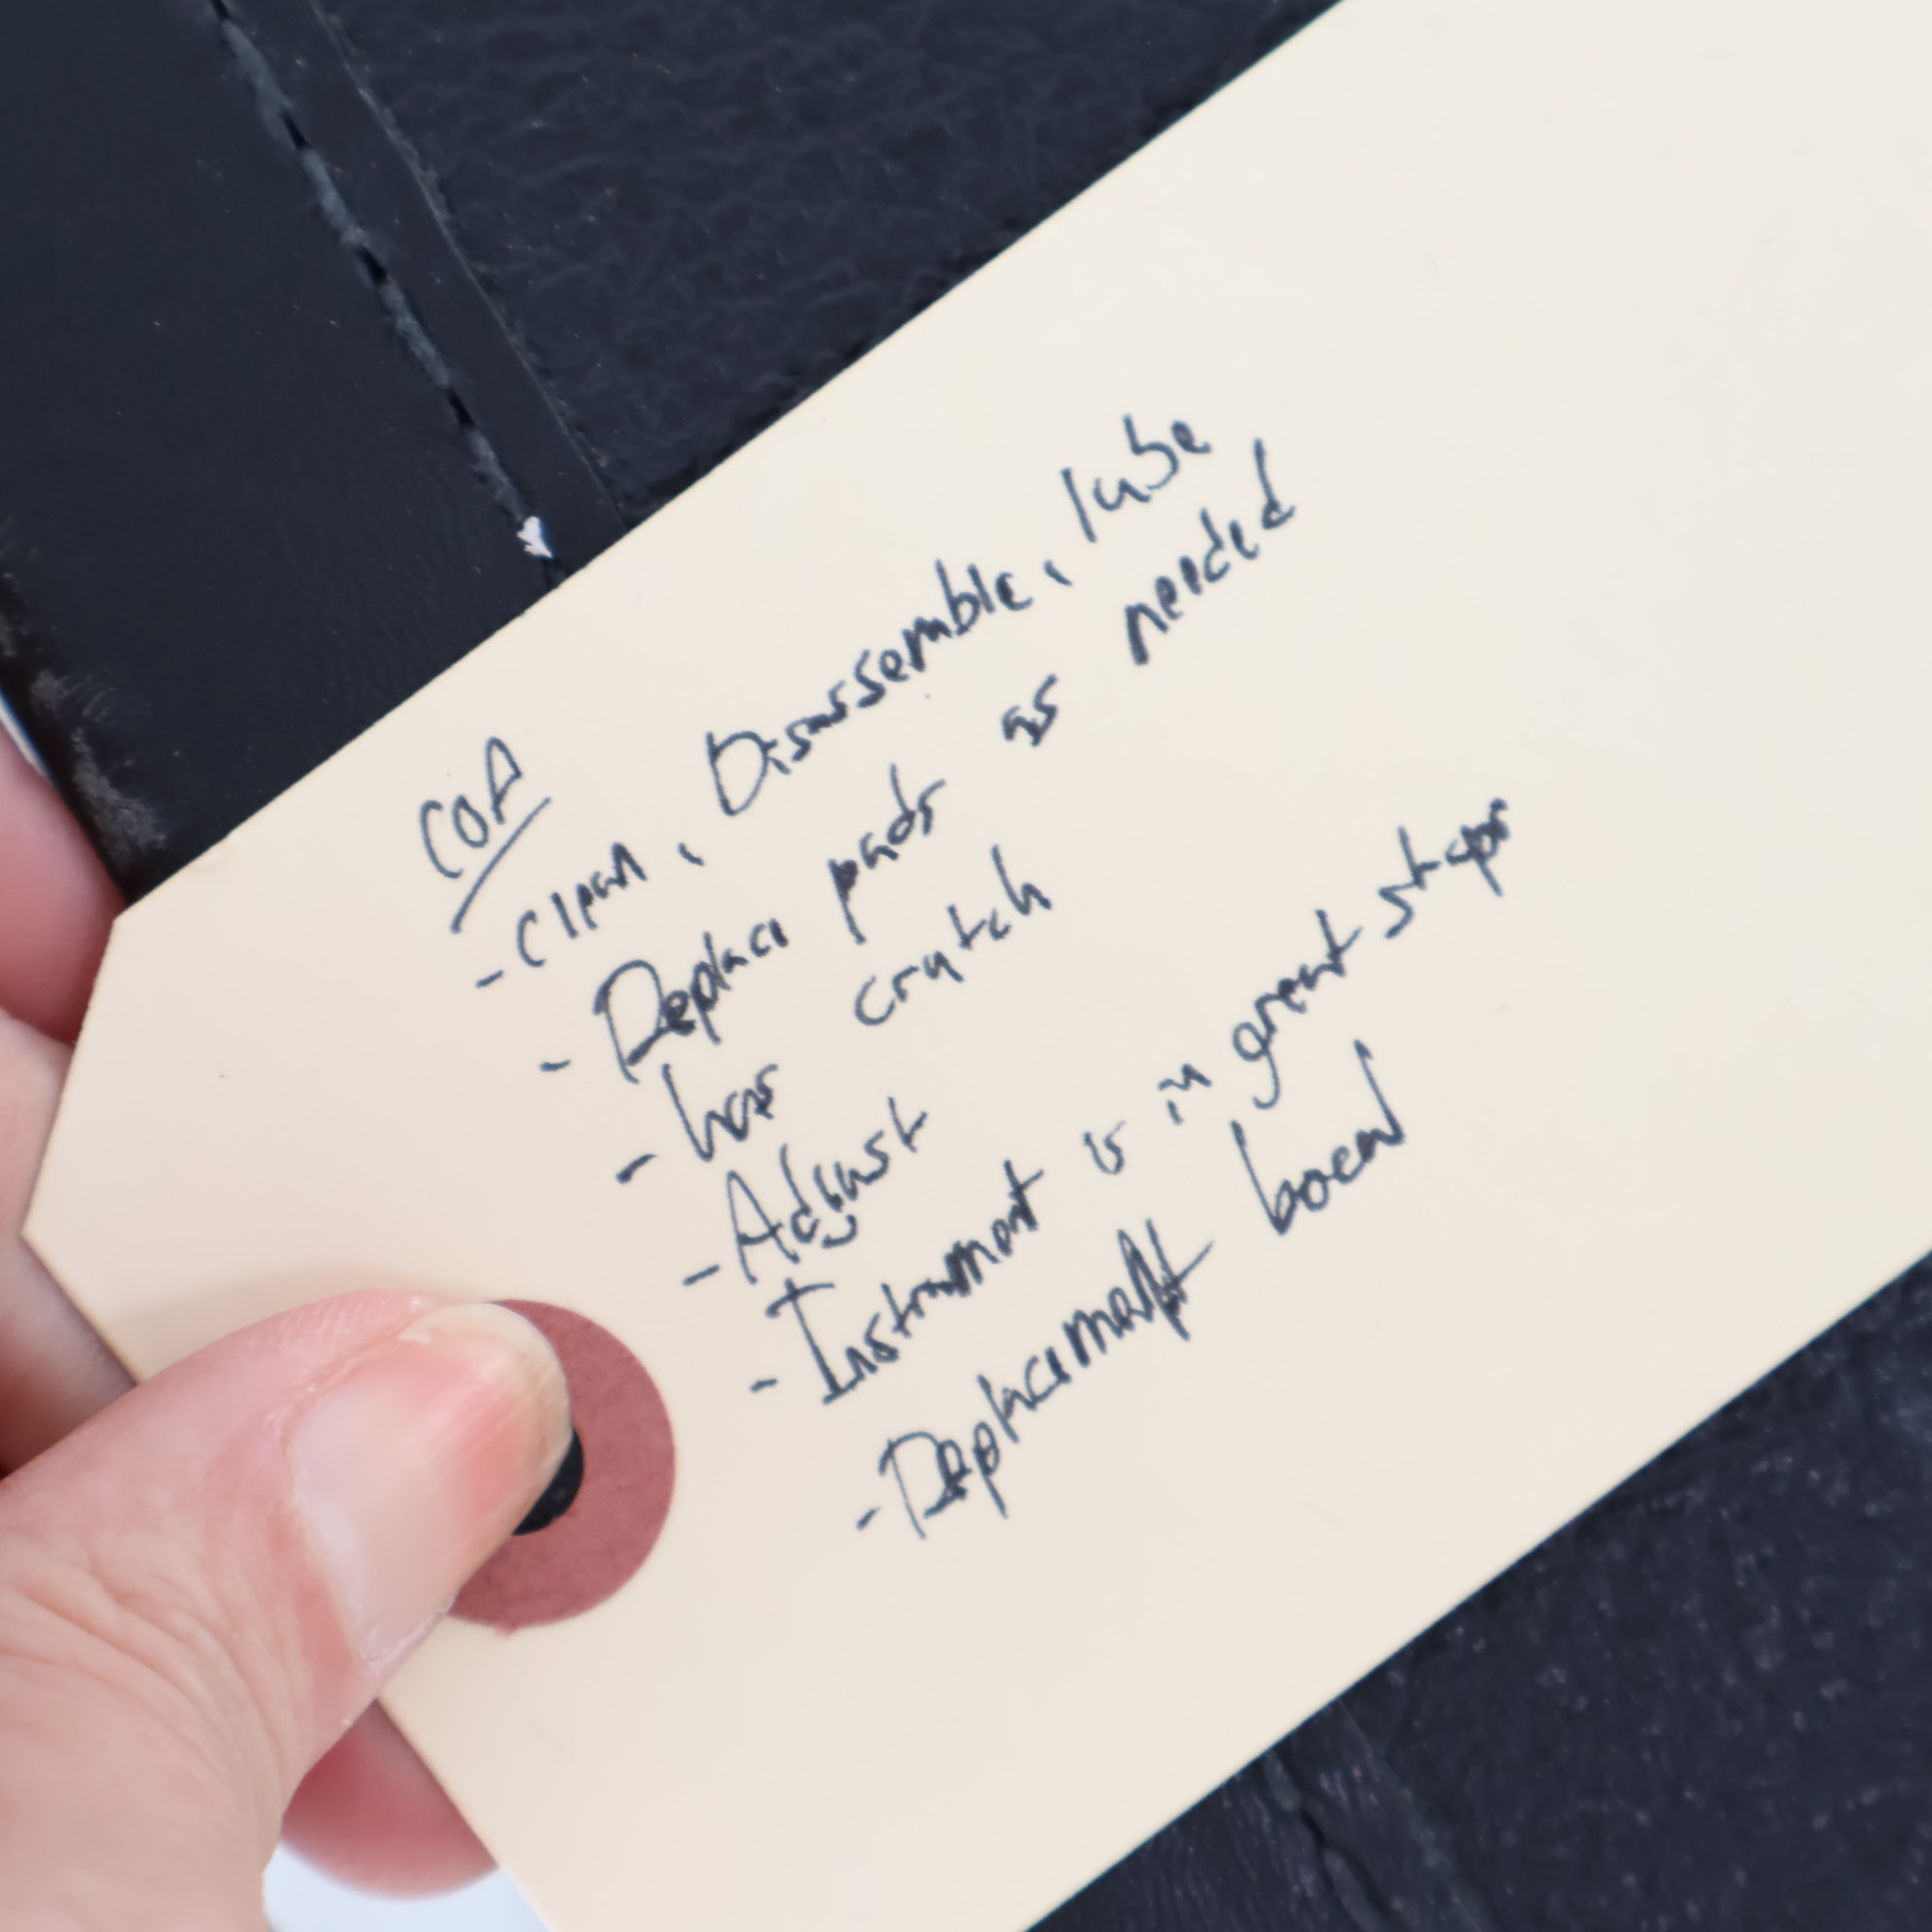 COA
- Clean, Disassemble, lube
- Replace pads as needed
- has crutch
- Adjust
- Instrument is in great shape
- Replacement bocal